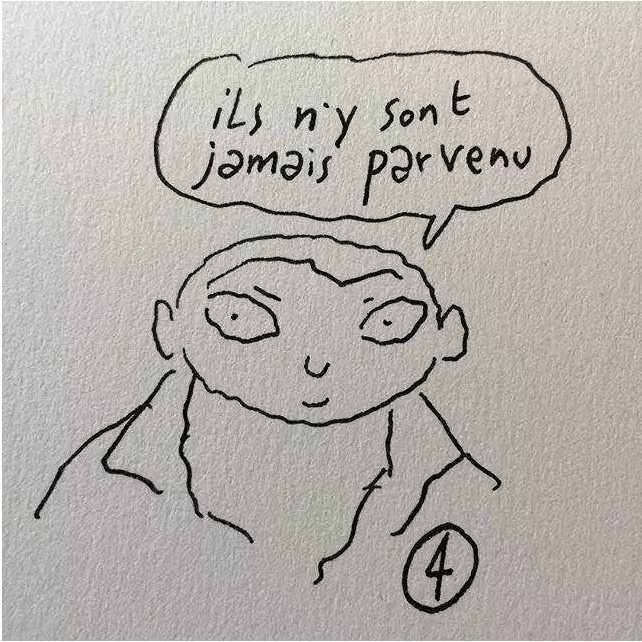 iLs n'y sont
jamais parvenu
4